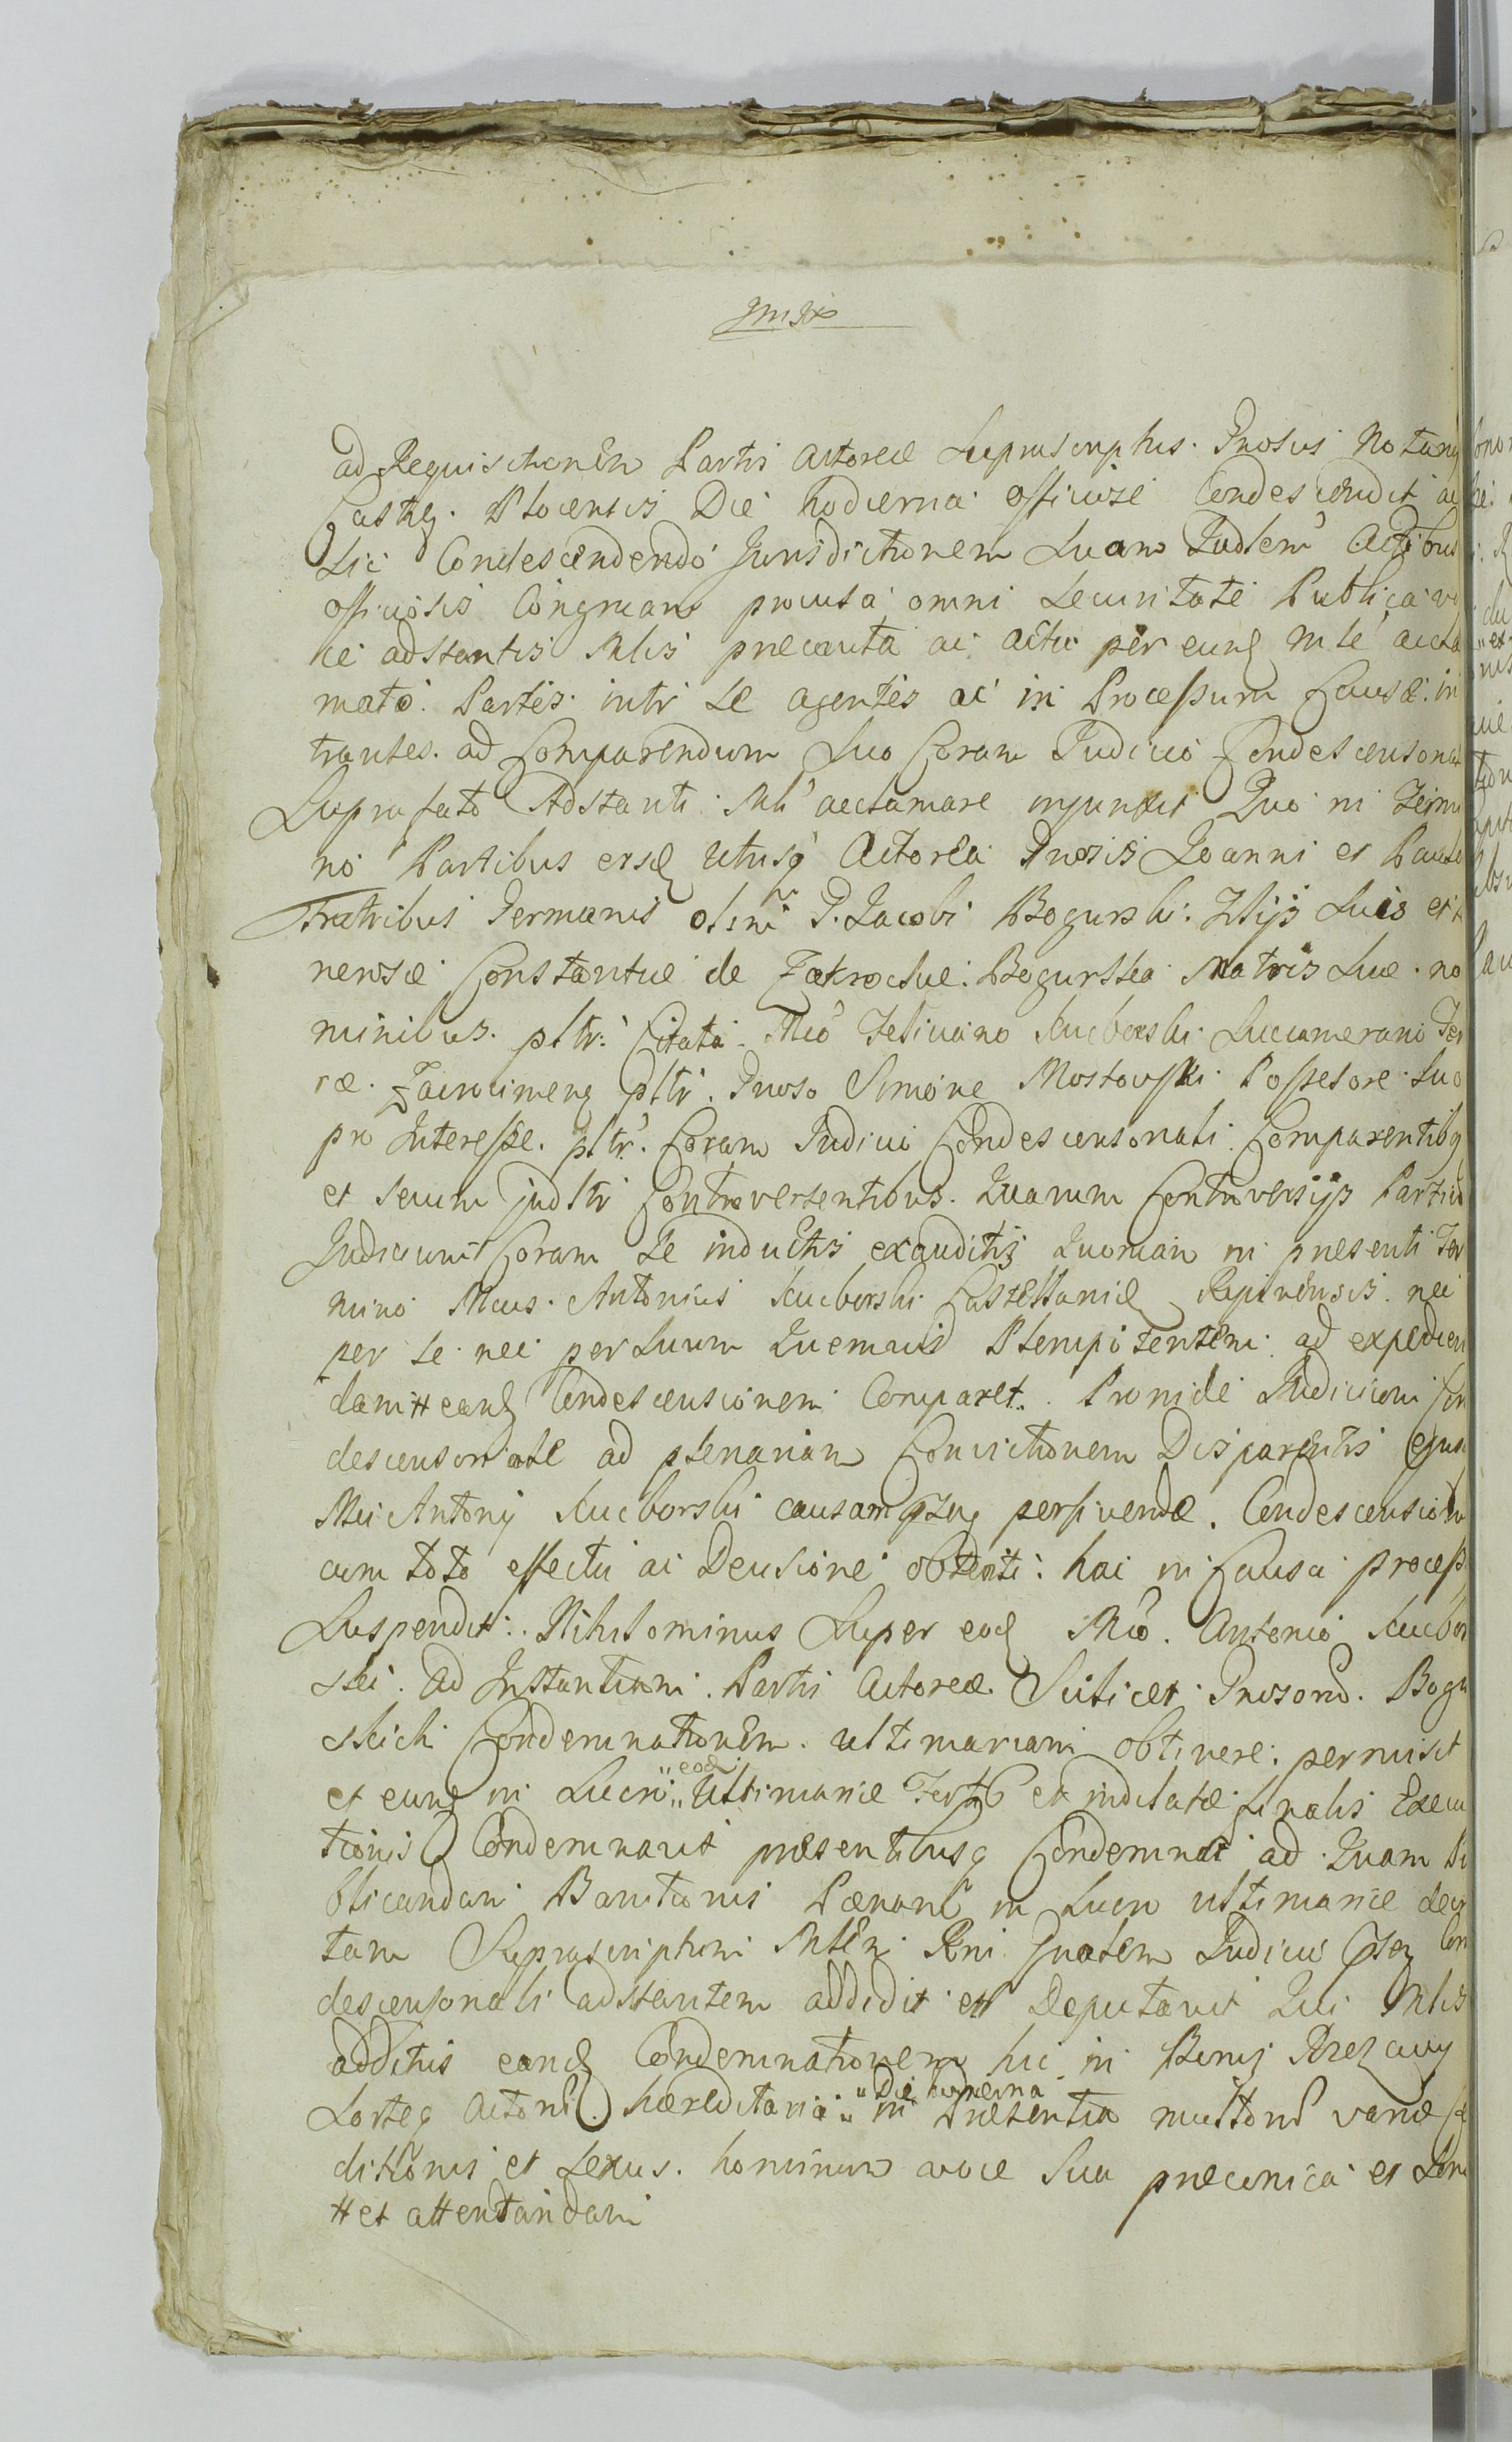 ad Requisitionem Partis Actoreæ Suprascriptus Gnosus Notariy
Castren. Plocensis Die hodierna officiose Condescendit ac
Sic Condescendendo Jurisdictionem Suam Judlem Actibus
officiosis Congruam procusa omni Securitate Publica vo
ce adstantis Mlis præcauta ac actu per eund Mle accla
mato. Partes intr Se agentes ac in Processum Causæ in
trantes. ad Comparendum Suo Coram Judicio Condescensonat
Suprafato Adstanti Mli acclamare injunxit Quo in Termi
no Partibus exsq utrisq Actorea Gnosis Joanni et Paulo
Fratribus Germanis olim G. Jacobi Bogurski Filijs Suis et
nerosæ Constantiæ de Zakroctue Bogurska Matris Suæ no
minibus pltr. Citata Mco Feliciano Kucborski Succamerario Ter
ræ Zacrocimen pltr. Gnoso Simone Mostowski Possesore Suo
pro Interesse pltr. Coram Judicio Condescensonali Comparentibq
et Secum judltr Controversentibus. Quarum Controversijs Partiu
Judicium Coram Se inductis exauditis Quoniam in præsenti Ter
mino Mcus Antonius Kucborski Castellanid Rypinensis nec
per Se nec per Suum Quemvis Plenipotentem ad expedien
dam # eand Condescensionem Comparet. Proinde Judicium Con
descensoriale ad plenariam Convictionem Disparentis ejus
Mci Antonij Kucborski causamq perficiendæ Condescension
cum toto effectu ac Decisione obtenti hac in Causa process
Suspendit. Nihilominus Super eod Mco. Antonio Kucbor
ski ad Instantiam Partis Actoreæ Scilicet Gnosord. Bogu
rskich Condemnationem ultimariam obtinere permisit
et eund in Lucro "eod" Ultimariæ et indilatæ finalis Execu
tionis Condemnavit præsentibusq Condemnat ad Quam Pu
blicandam Banitionis Pænam in Lucro ultimariæ decre
tam Suprascriptum Mlem Rni Gnalem Judicio Con
descensonali adstantem addidit et Deputavit Qui Mlis
additus eand Condemnationem hic in Bonis
Sorteq Actorid hæreditaria "Die hodierna" in Præsentia multord variæ Con
ditionis et Sexus hominum voce Sua præconica et Son
# et attentandam